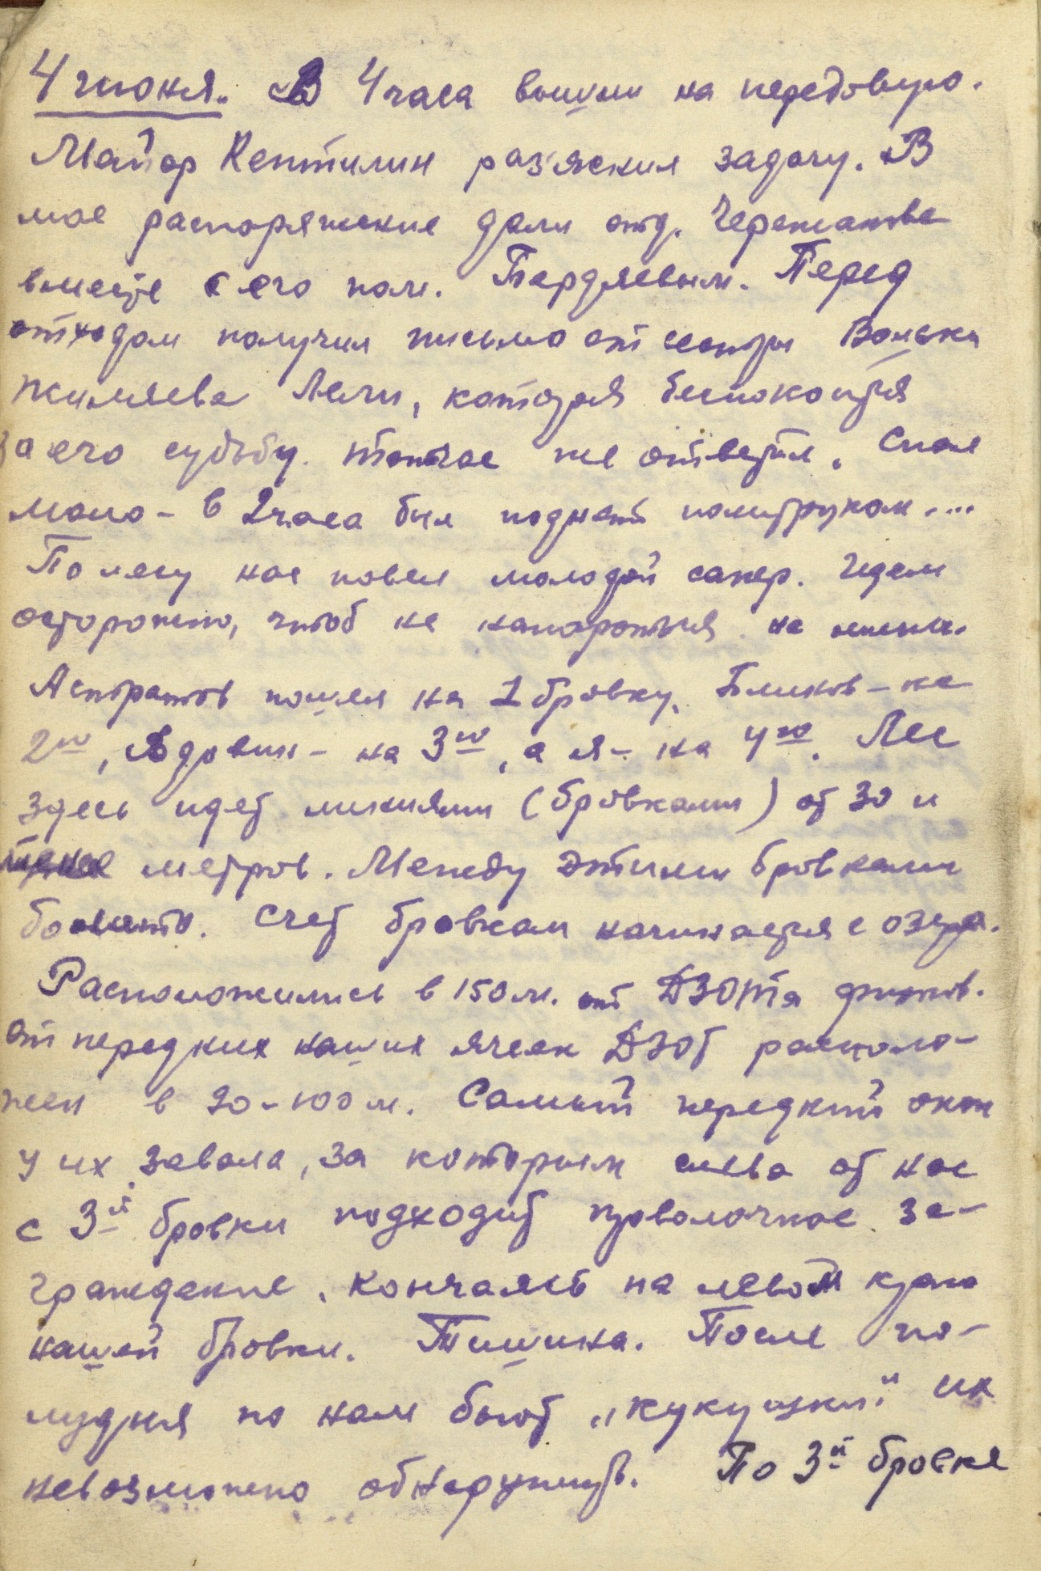 4 июня. В 4 часа вышли на передовую.
Майор Кептилин раз'яснил задачу. В
мое распоряжение дали отд. Черепанова
вместе с его пом. Бердяевым. Перед
отходом получил письмо от сестры Вольки
Жиляева Лели, которая беспокоится
за его судьбу. Тотчас же ответил. Спал
мало - в 2 часа был поднят политруком....
По лесу нас повел молодой сапер. Идем
осторожно, чтоб не напороться на мины.
Астратов пошел на 1 бровку, Блинов - на
2ю, Ядровин - на 3ю, а я - на 4ю. Лес
здесь идет линиями (бровками) от 30 и
менее метров. Между этими бровками
болото. Счет бровкам начинается с озера.
Расположились в 150 м. от ДЗОТа финнов.
От передних наших ячеек ДЗОТ располо-
жен в 90-100 м. Самый передний окоп
у их завала, за которым слева от нас
с 3й бровки подходит проволочное за-
граждение, кончаясь на левом краю
нашей бровки. Тишина. После по-
лудня по нам бьют „кукушки". Их
невозможно обнаружить. По 3й бровке